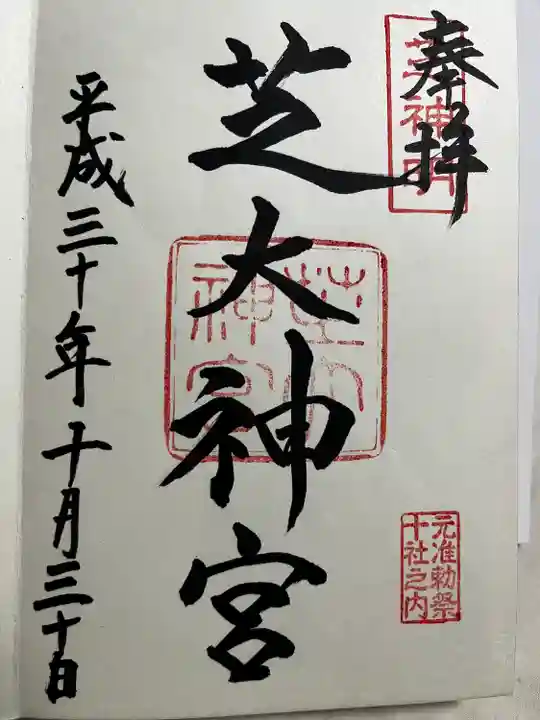 奉拝
芝神明
芝大神宮
芝大神宮
元准勅祭
十社之内
平成三十年十月三十日